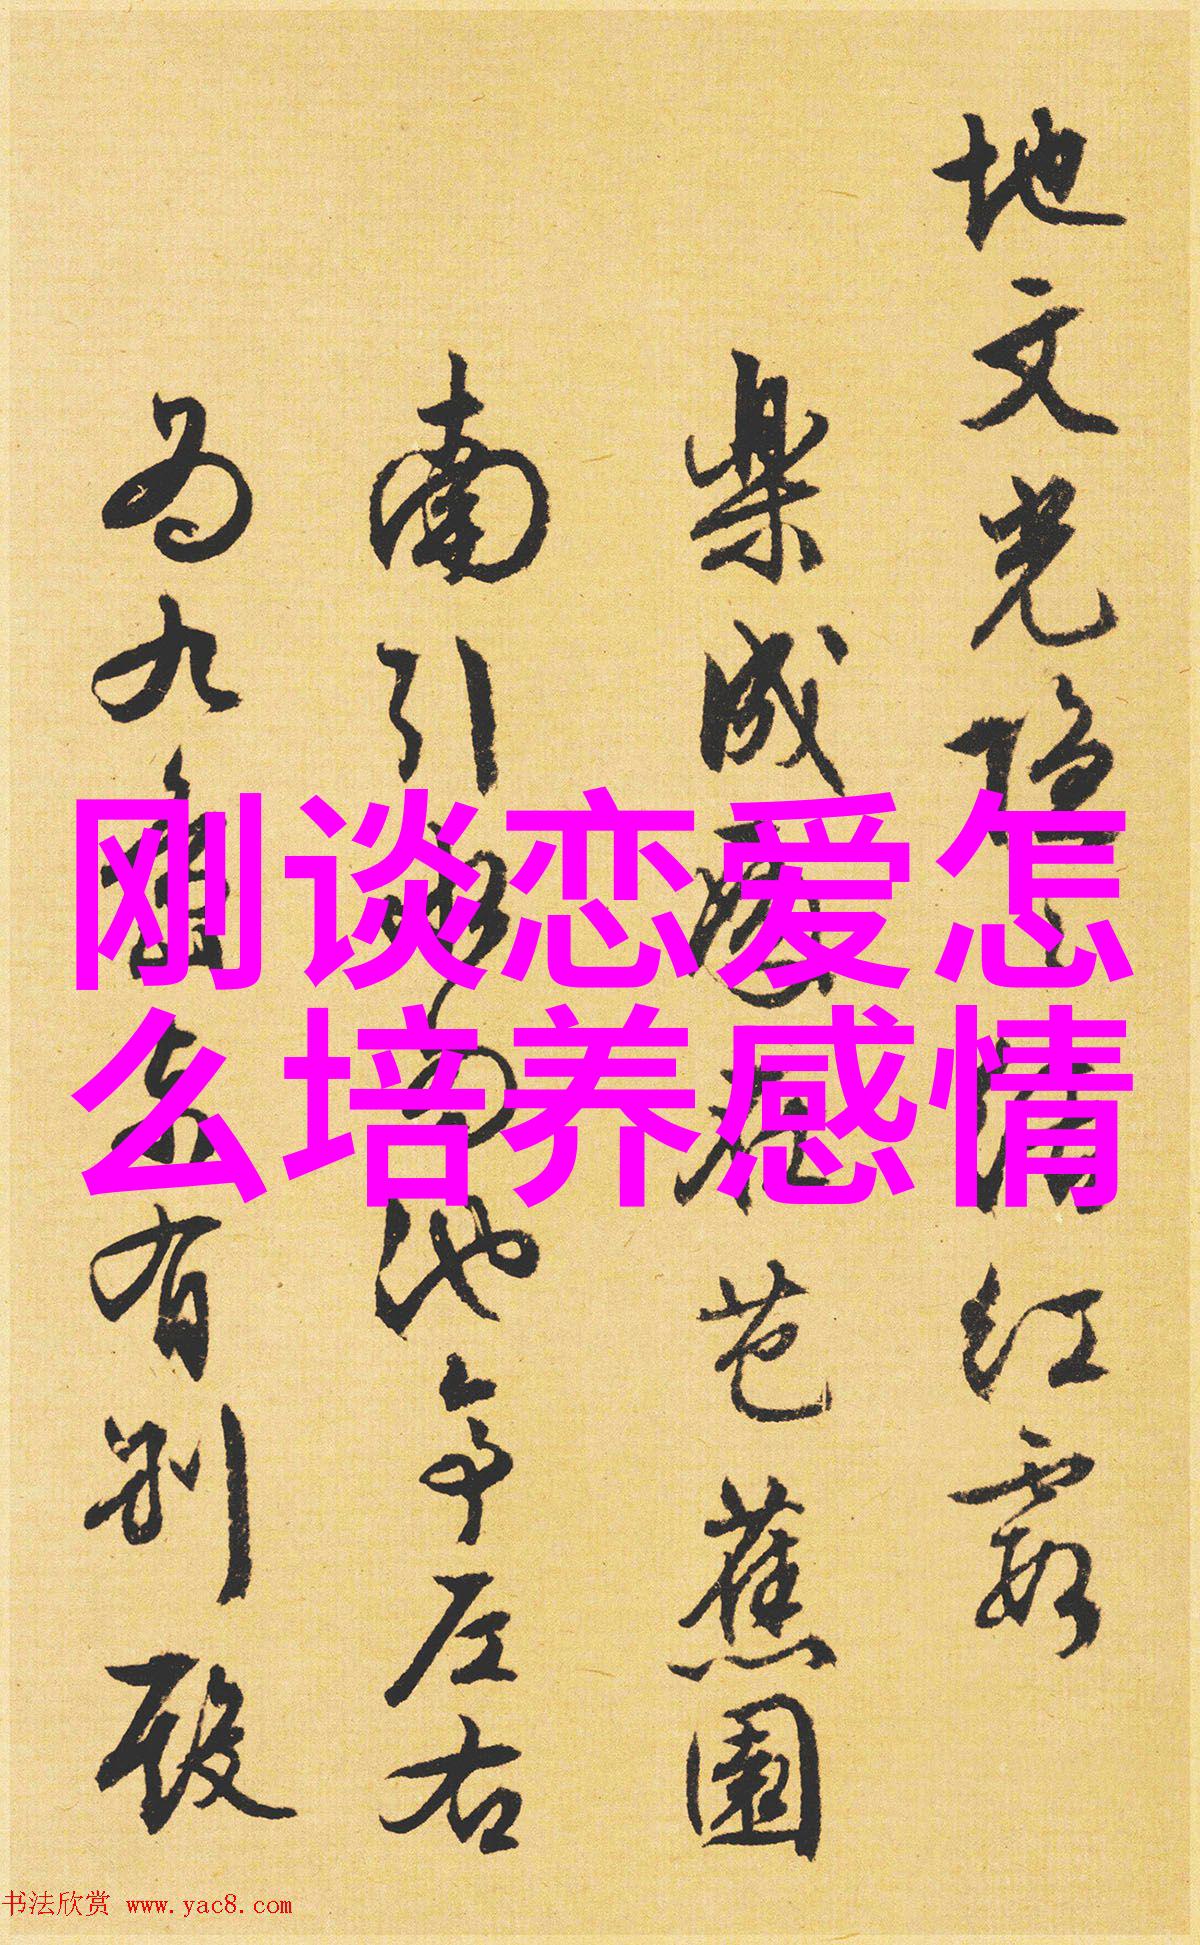 地文光隐 红霞
樂成 花芭蕉園
南引 南池亭左右
为九 有别殿
刚谈恋爱怎
么培养感情
书法欣赏 www.yac8.com